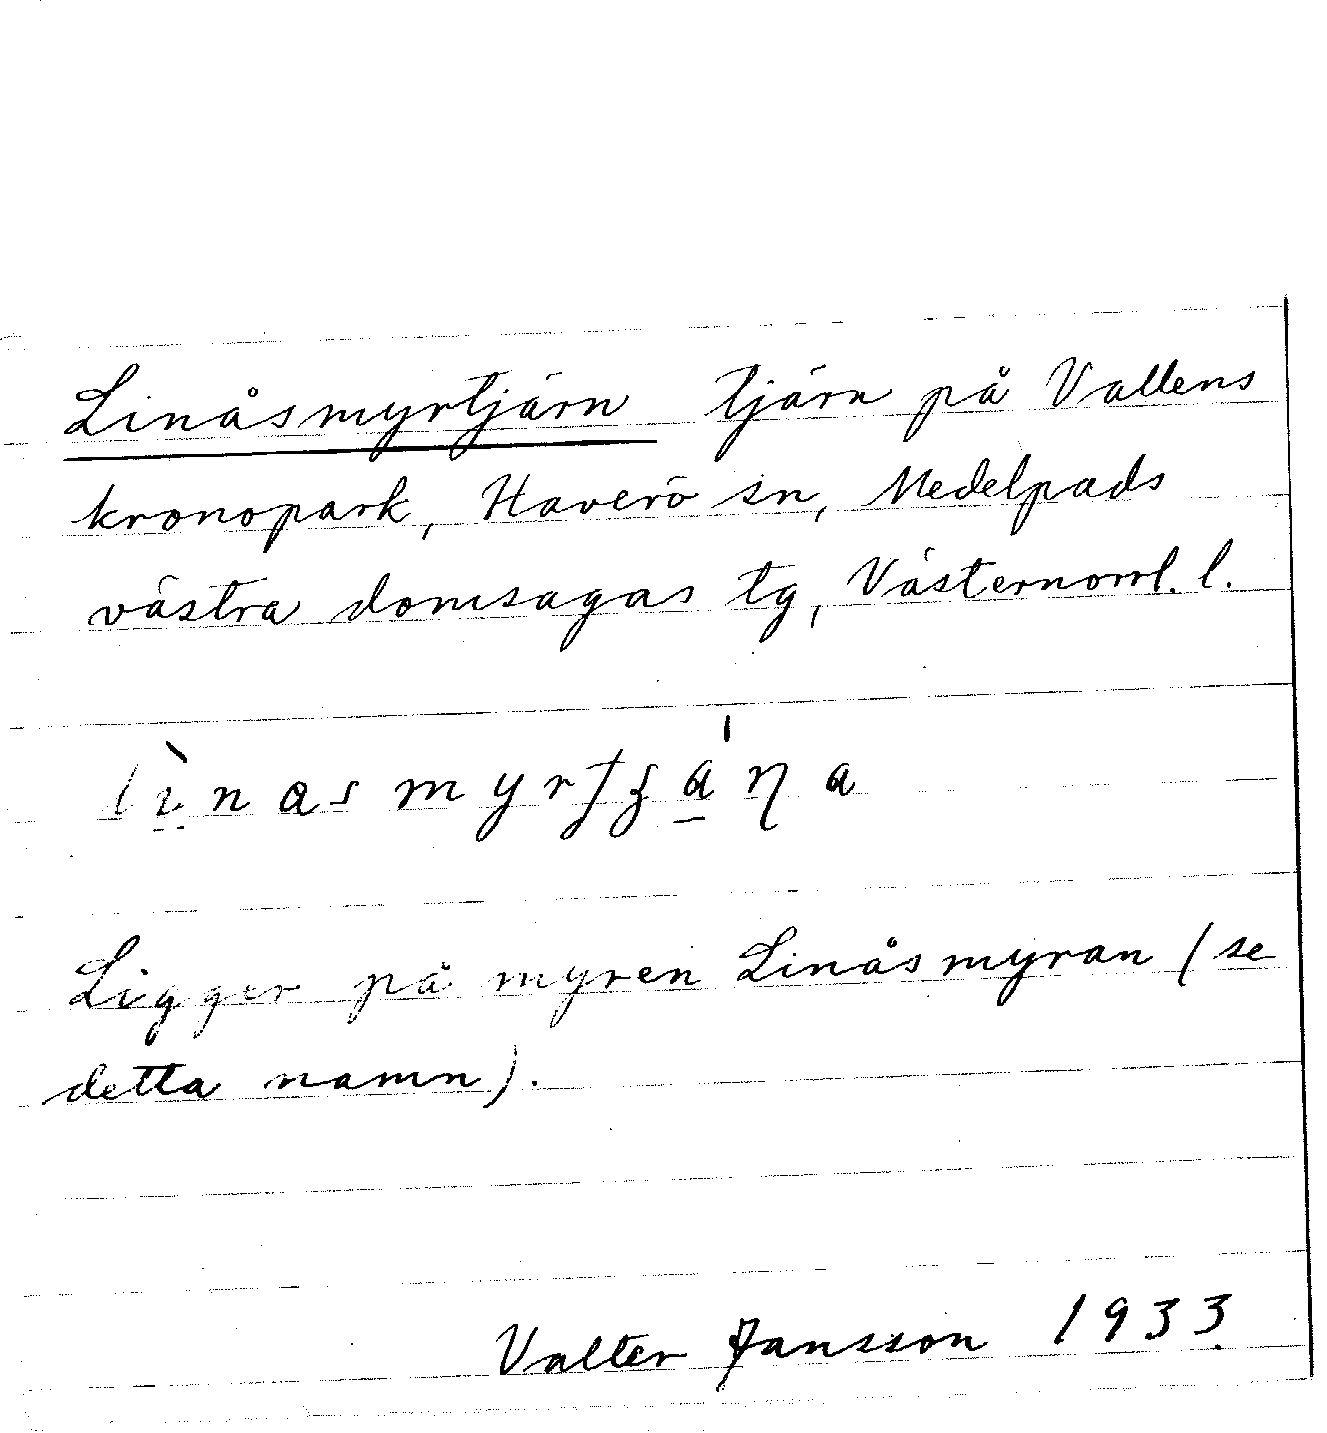 Linåsmyrtjärn tjärn på Vallens
kronopark, Haverö sn, Medelpads
västra domsagas tg, Västernorrl. l.
Ligger på myren Linåsmyran (se
detta namn).
Valter Jansson 1933.